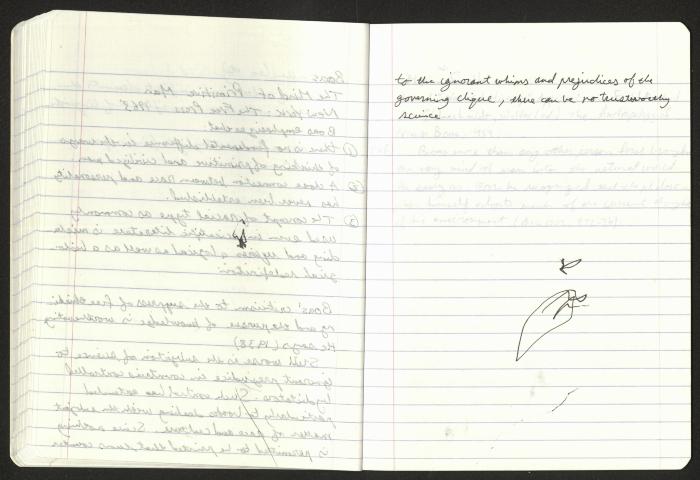 Boas
The Mind of Primitive Man
New York: The Free Press 1963
Boas emphasizes that
(1) there is no fundamental difference in the ways
of thinking of primitive and civilized man
(2) A close connection between race and personality
has never been established.
(3) The concept of racial type as commonly
used even in scientific literature is mislea
ding and requires a logical as well as a biolo-
gical redefinition
Boas' criticism to the suppress of free thinki-
ng and the pursue of knowledge is worth noting
He says (1938)
Still worse is the subjection of science to
ignorant prejudice in countries controlled
by dictators. Such control has extended
particularly to books dealing with the subject
matter of race and culture. Since nothing
is permitted to be printed that runs counter
to the ignorant whims and prejudices of the
governing clique, there can be no trustworthy
science